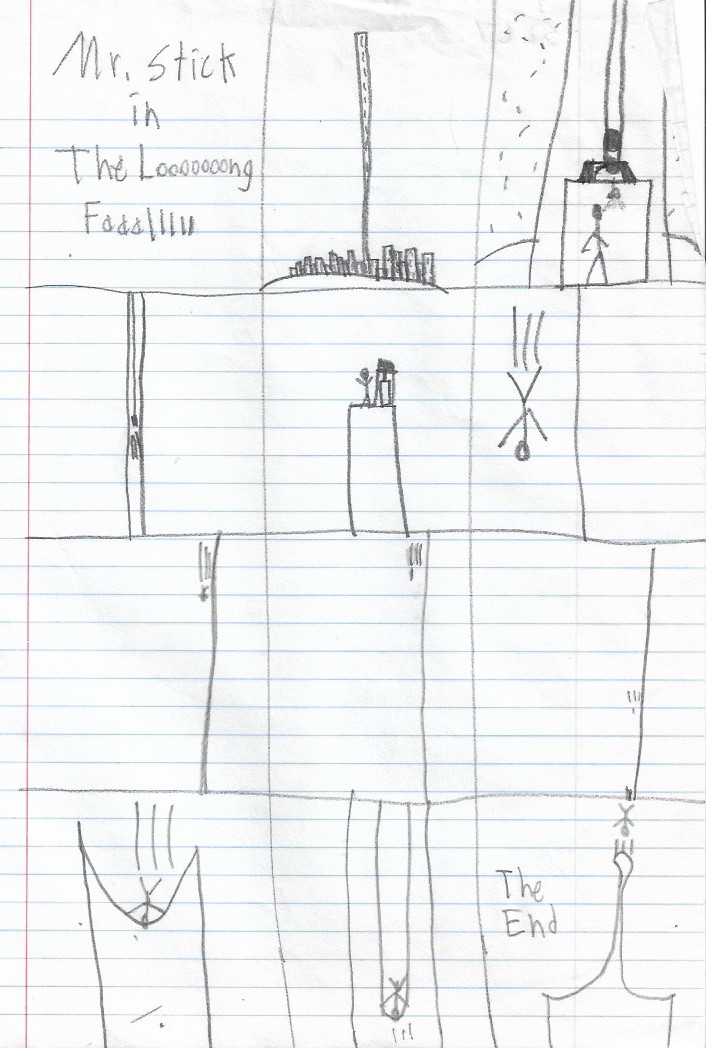 Mr. Stick
in
The Looooooong
Faaalllll
The
End